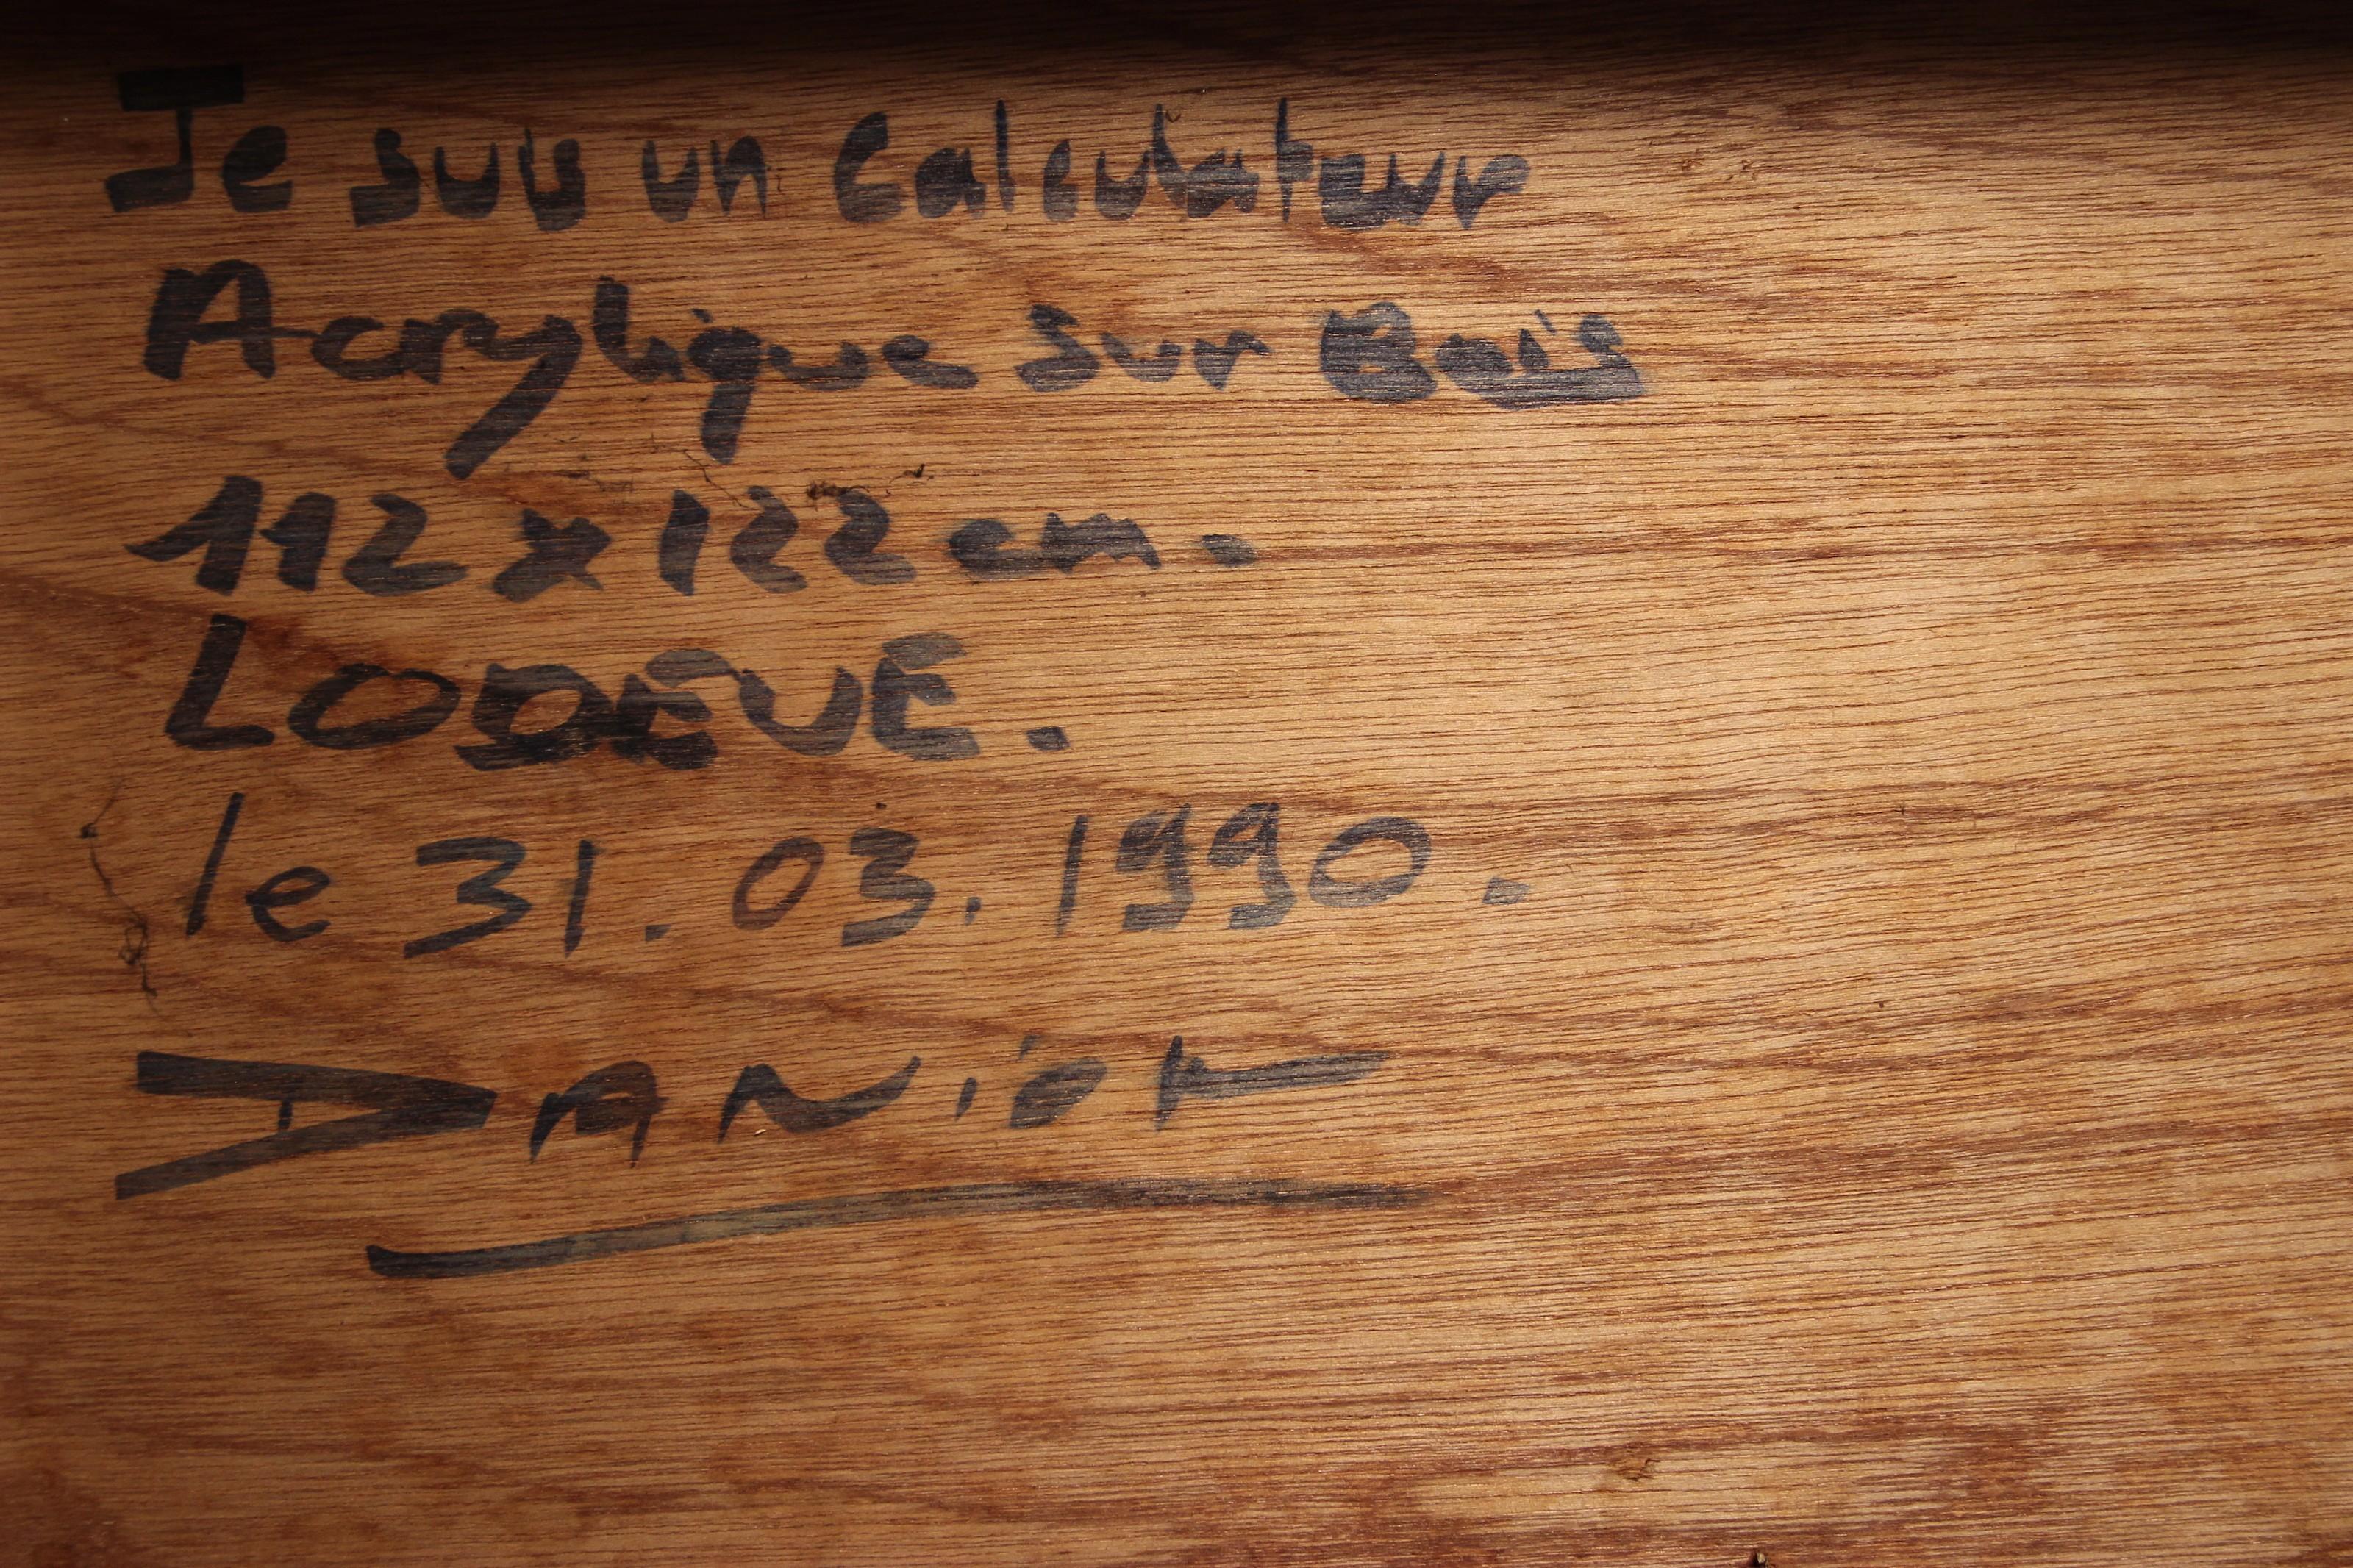 Je suis un Calculateur
Acrylique sur Bois
112 x 122 cm.
LODEVE.
le 31.03.1990.